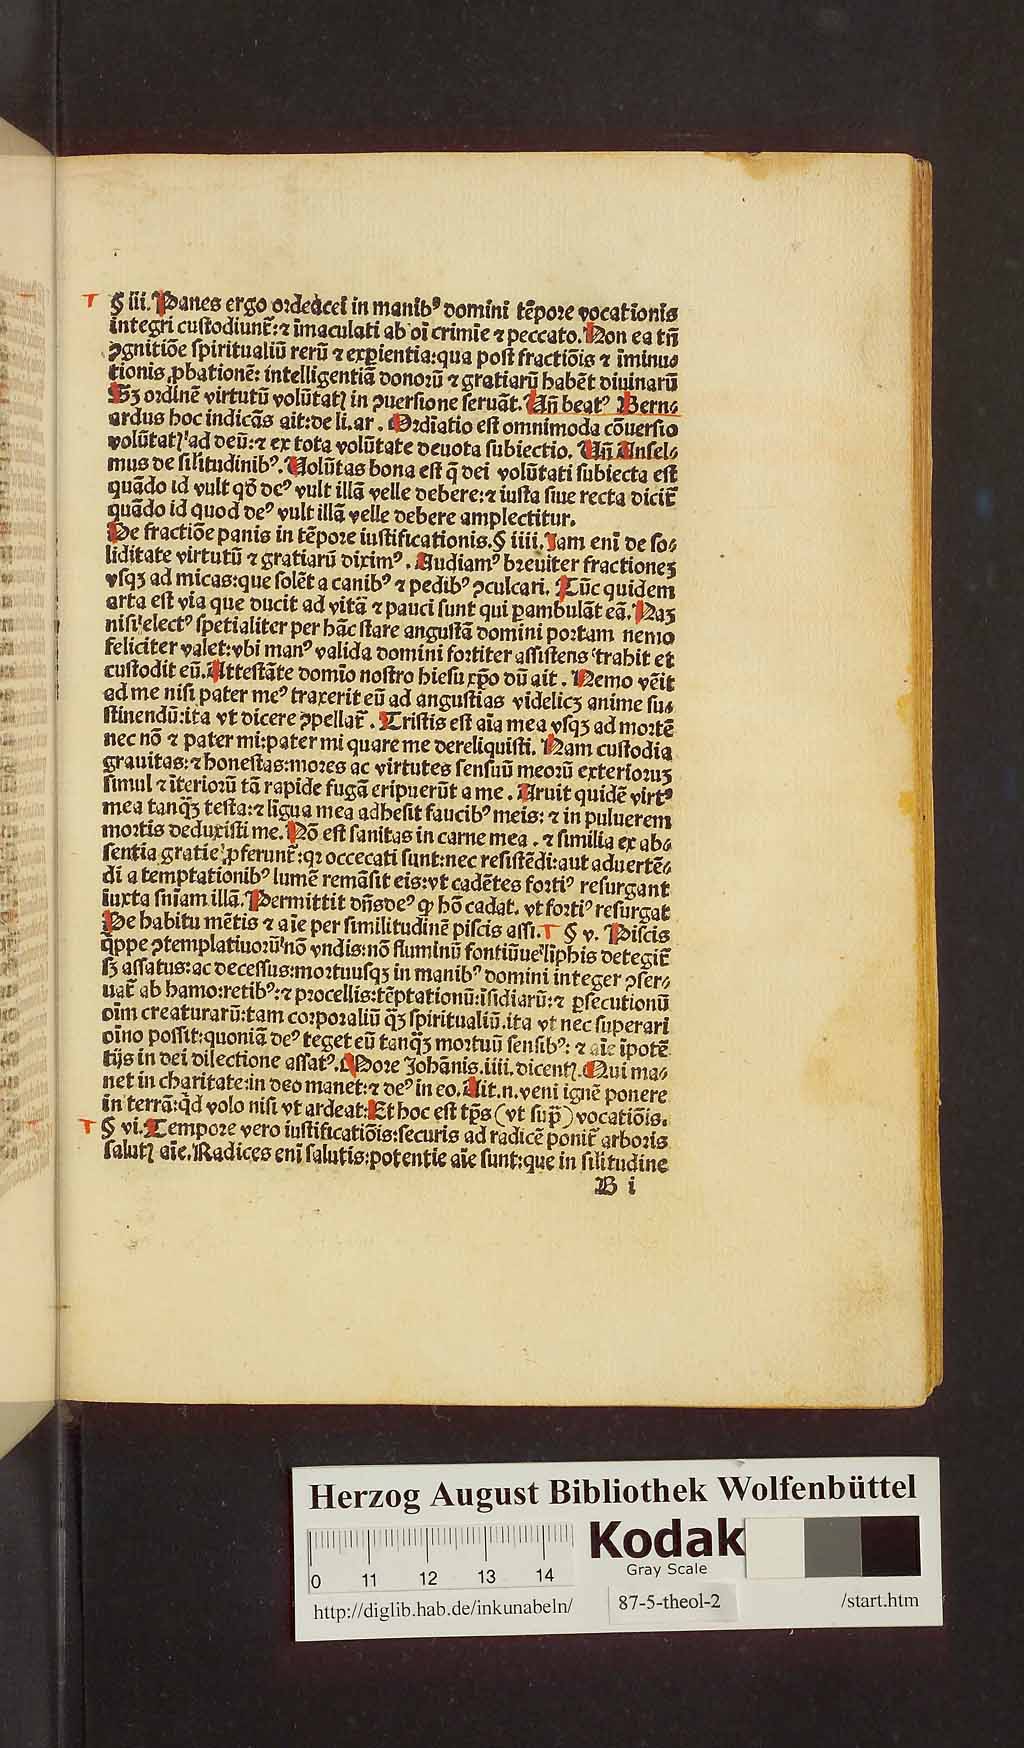 § iii. Panes ergo ordeacei in manibꝰ domini tēpore vocationis
integri custodiunt᷑: ⁊ īmaculati ab oī crimīe ⁊ peccato. Non ea tn̄
ꝯgnitiōe spiritualiū rerū ⁊ experientia: qua post fractiōis ⁊ īminu⸗
tionis ꝓbationē: intelligentiā donorū ⁊ gratiarū habēt diuinarū
Sꝫ ordinē virtutū volūtatꝭ in ꝯuersione seruāt. Un̄ beatꝰ Bern⸗
ardus hoc indicās ait: de li. ar. Ordiatio est omnimoda cōuersio
volūtatꝭ ad deū: ⁊ ex tota volūtate deuota subiectio. Un̄ Ansel⸗
mus de silitudinibꝰ. Uolūtas bona est q̄ dei volūtati subiecta est
quādo id vult qd̄ deꝰ vult illā velle debere: ⁊ iusta siue recta dicit᷑
quādo id quod deꝰ vult illā velle debere amplectitur.
De fractiōe panis in tēpore iustificationis. § iiii. Iam enī de so⸗
liditate virtutū ⁊ gratiarū diximꝰ. Audiamꝰ breuiter fractioneꝫ
vsqꝫ ad micas: que solēt a canibꝰ ⁊ pedibꝰ ꝯculcari. Tūc quidem
arta est via que ducit ad vitā ⁊ pauci sunt qui ꝑambulāt eā. Naꝫ
nisi electꝰ spetialiter per hāc stare angustā domini portam nemo
feliciter valet: vbi manꝰ valida domini fortiter assistens trahit et
custodit eū. Attestāte domīo nostro hiesu xp̄o dū ait. Nemo vēit
ad me nisi pater meꝰ traxerit eū ad angustias videlicꝫ anime su⸗
stinendū: ita vt dicere ꝯpellat᷑. Tristis est aīa mea vsqꝫ ad mortē
nec nō ⁊ pater mi: pater mi quare me dereliquisti. Nam custodia
grauitas: ⁊ honestas: mores ac virtutes sensuū meorū exterioruꝫ
simul ⁊ īteriorū tā rapide fugā eripuerūt a me. Aruit quidē virtꝰ
mea tanqꝫ testa: ⁊ līgua mea adhesit faucibꝰ meis: ⁊ in puluerem
mortis deduxisti me. Nō est sanitas in carne mea. ⁊ similia ex ab⸗
sentia gratie ꝓferunt᷑: qꝛ occecati sunt: nec resistēdi: aut aduertē⸗
di a temptationibꝰ lumē remāsit eis: vt cadētes fortiꝰ resurgant
iuxta sniam illā. Permittit dn̄s deꝰ ꝙ hō cadat. vt fortiꝰ resurgat
De habitu mētis ⁊ aīe per similitudinē piscis assi. § v. Piscis
q̄ppe ꝯtemplatiuorū nō vndis: nō fluminū fontiū ue līphis detegit᷑
sꝫ assatus: ac decessus: mortuusqꝫ in manibꝰ domini integer ꝯser⸗
uat᷑ ab hamo: retibꝰ: ⁊ procellis: tēptationū: īsidiarū: ⁊ ꝑsecutionū
oīm creaturarū: tam corporaliū qꝫ spiritualiū. ita vt nec superari
oīno possit: quoniā deꝰ teget eū tanqꝫ mortuū sensibꝰ: ⁊ aīe īpotē
tijs in dei dilectione assatꝰ. More Johānis. iiii. dicentꝭ. Qui ma⸗
net in charitate: in deo manet: ⁊ deꝰ in eo. Ait. n. veni ignē ponere
in terrā: qd̄ volo nisi vt ardeat: Et hoc est tp̄s (vt sup̄) vocatiōis.
§ vi. Tempore vero iustificatiōis: securis ad radicē ponit᷑ arboris
salutꝭ aīe. Radices enī salutis: potentie aīe sunt: que in silitudine
B i
Herzog August Bibliothek Wolfenbüttel
Kodak
Gray Scale
0 11 12 13 14
http://diglib.hab.de/inkunabeln/ 87-5-theol-2 /start.htm